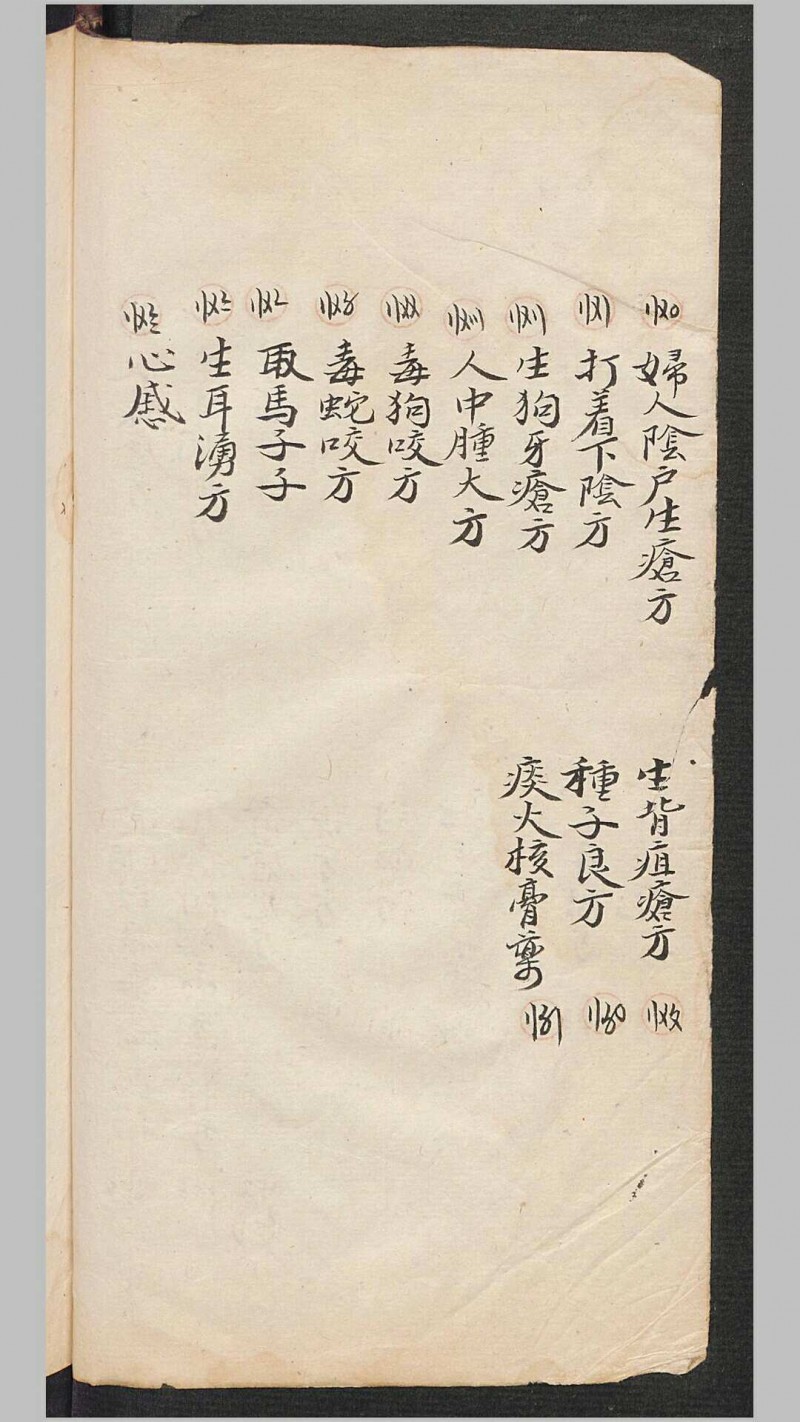 〢〤〇
婦人陰户生瘡方
〢〤〡
打着下陰方
〢〤〢
生狗牙瘡方
〢〤〣
人中腫大方
〢〤〤
毒狗咬方
〢〤〥
毒蛇咬方
〢〤〦
取馬子子
〢〤〧
生耳湧方
〢〤〨
心感
生背疽瘡方
〢〤〩
種子良方
〢〥〇
痰火核膏藥
〢〥〡